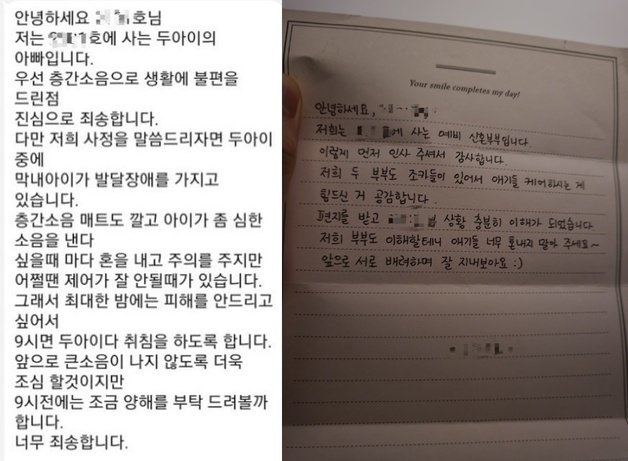 안녕하세요 호님
저는 호에 사는 두아이의
아빠입니다.
우선 층간소음으로 생활에 불편을
드린점
진심으로 죄송합니다.
다만 저희 사정을 말씀드리자면 두아이
중에
막내아이가 발달장애를 가지고
있습니다.
층간소음 매트도 깔고 아이가 좀 심한
소음을 낸다
싶을때 마다 혼을 내고 주의를 주지만
어쩔땐 제어가 잘 안될때가 있습니다.
그래서 최대한 밤에는 피해를 안드리고
싶어서
9시면 두아이다 취침을 하도록 합니다.
앞으로 큰소음이 나지 않도록 더욱
조심 할것이지만
9시전에는 조금 양해를 부탁 드려볼까
합니다.
너무 죄송합니다.
Your smile completes my day!
안녕하세요,
저희는 에 사는 예비 신혼부부입니다.
이렇게 먼저 인사 주셔서 감사합니다.
저희 두 부부도 조카들이 있어서 애기들 케어하시는 게
힘드신 거 공감합니다.
편지를 받고 님 상황 충분히 이해가 되었습니다
저희 부부도 이해할테니 애기들 너무 혼내지 말아 주세요~
앞으로 서로 배려하며 잘 지내보아요 :)